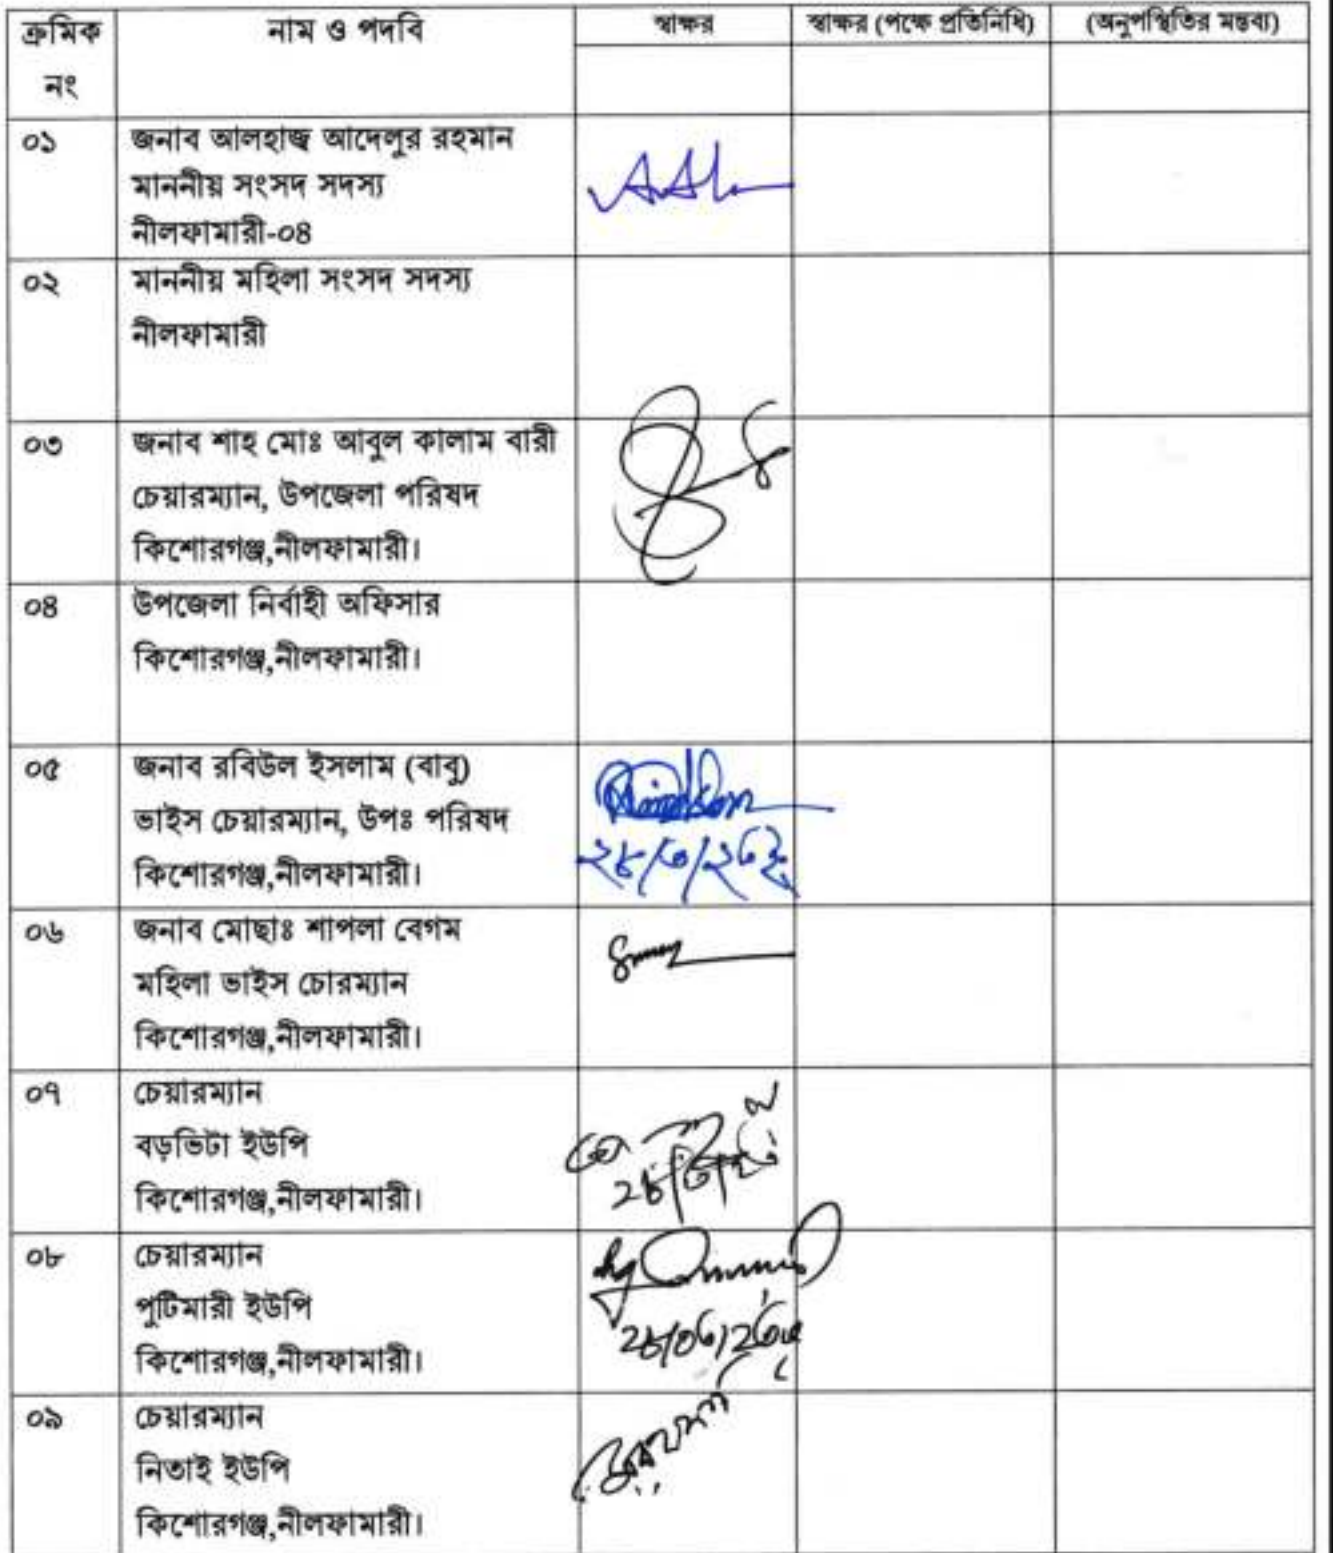 ক্রমিক নং নাম ও পদবি স্বাক্ষর স্বাক্ষর (পক্ষে প্রতিনিধি) (অনুপস্থিতির মন্তব্য)
০১ জনাব আলহাজ্ব আদেলুর রহমান
মাননীয় সংসদ সদস্য
নীলফামারী-০৪
০২ মাননীয় মহিলা সংসদ সদস্য
নীলফামারী
০৩ জনাব শাহ মোঃ আবুল কালাম বারী
চেয়ারম্যান, উপজেলা পরিষদ
কিশোরগঞ্জ,নীলফামারী।
০৪ উপজেলা নির্বাহী অফিসার
কিশোরগঞ্জ,নীলফামারী।
০৫ জনাব রবিউল ইসলাম (বাবু)
ভাইস চেয়ারম্যান, উপঃ পরিষদ
কিশোরগঞ্জ,নীলফামারী।
২৮/৩/২৩ইং
০৬ জনাব মোছাঃ শাপলা বেগম
মহিলা ভাইস চোরম্যান
কিশোরগঞ্জ,নীলফামারী।
০৭ চেয়ারম্যান
বড়ভিটা ইউপি
কিশোরগঞ্জ,নীলফামারী।
০৮ চেয়ারম্যান
পুটিমারী ইউপি
কিশোরগঞ্জ,নীলফামারী।
০৯ চেয়ারম্যান
নিতাই ইউপি
কিশোরগঞ্জ,নীলফামারী।